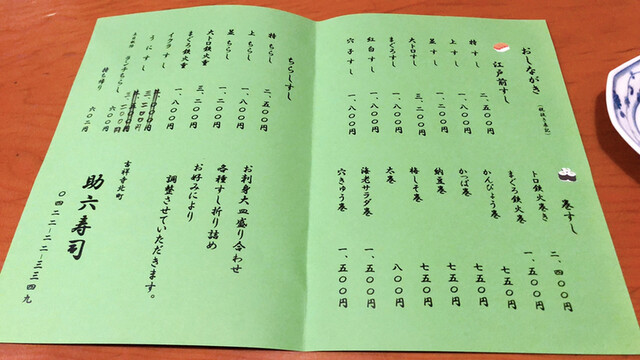 おしながき
江戸前すし
特すし 二、五〇〇円
上すし 一、八〇〇円
並すし
大トロすし 三、二〇〇円
まぐろすし 一、八〇〇円
紅白すし 一、八〇〇円
穴子すし 一、八〇〇円
巻すし
トロ鉄火巻き 二、四〇〇円
まぐろ鉄火巻 一、五〇〇円
かんぴょう巻 七五〇円
かっぱ巻 七五〇円
納豆巻 七五〇円
梅しそ巻 七五〇円
太巻 八〇〇円
海老サラダ巻 一、五〇〇円
穴きゅう巻 一、五〇〇円
ちらしすし
特ちらし 二、五〇〇円
上ちらし 一、八〇〇円
並ちらし
大トロ鉄火重 三、二〇〇円
まぐろ鉄火重 一、八〇〇円
イクラすし 一、八〇〇円
うにすし
ランチちらし
持ち帰り
お刺身大皿盛り合わせ
各種すし折り詰め
お好みにより
調整させていただきます。
吉祥寺北町
助六寿司
〇四二二-二二-三三四九